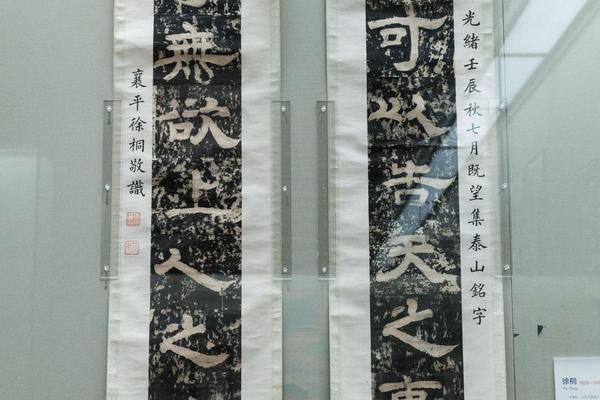 光緒壬辰秋七月既望集泰山銘字
可以告天之
無欲上人之
襄平徐桐敬識
徐桐
Xu Tong